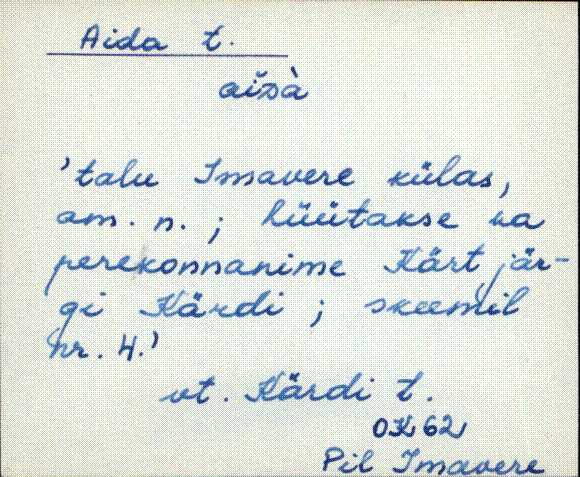 Aida t.
aĭsà
'talu Imavere külas,
am. n.; hüütakse ka
perekonnanime Kärt jär-
gi Kärdi; skeemil
nr. 4.'
vt. Kärdi t.
OK 62
Pil Imavere